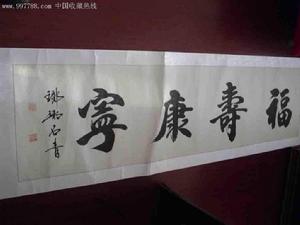 www.997788.com 中国收藏热线
福壽康寧